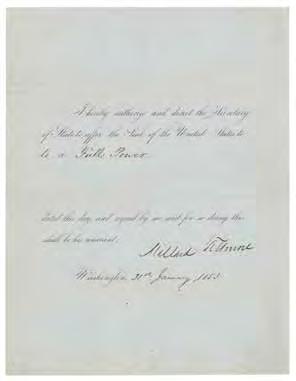 I hereby authorize and direct the Secretary
of State to affix the Seal of the United States to
to a Full Power
dated this day, and signed by me and for so doing this
shall be his warrant.
Millard Fillmore
Washington, 31st January, 1853.